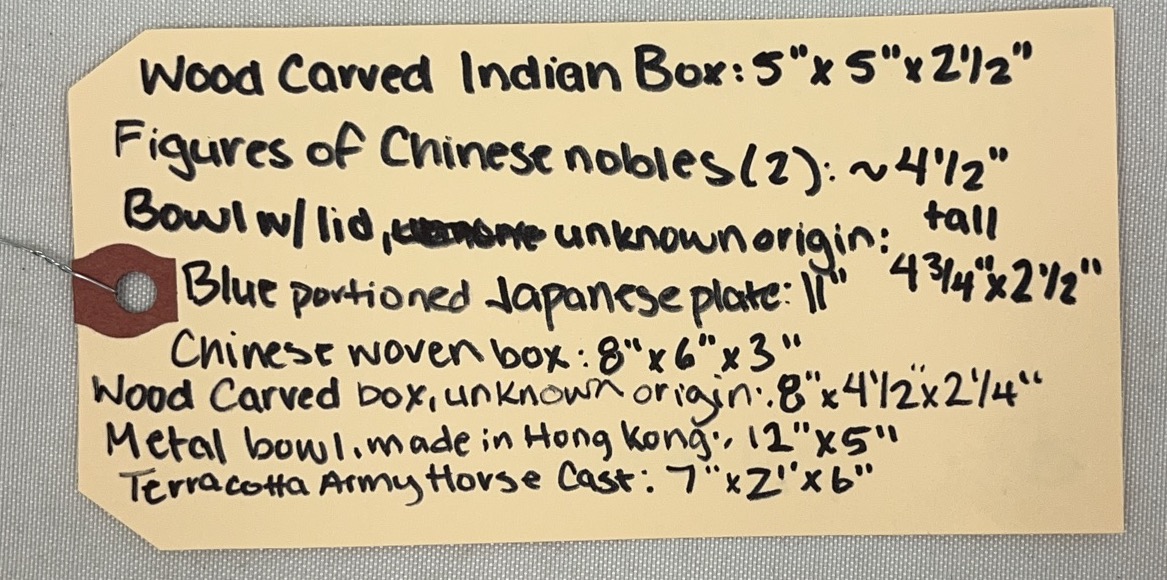 Wood Carved Indian Box: 5" x 5" x 2 1/2"
Figures of Chinese nobles (2): ~ 4 1/2" tall
Bowl w/ lid, unknown origin: 4 3/4" x 2 1/2"
Blue portioned Japanese plate: 11"
Chinese woven box: 8" x 6" x 3"
Wood Carved box, unknown origin: 8" x 4 1/2" x 2 1/4"
Metal bowl, made in Hong Kong: 12" x 5"
Terracotta Army Horse Cast: 7" x 2" x 6"